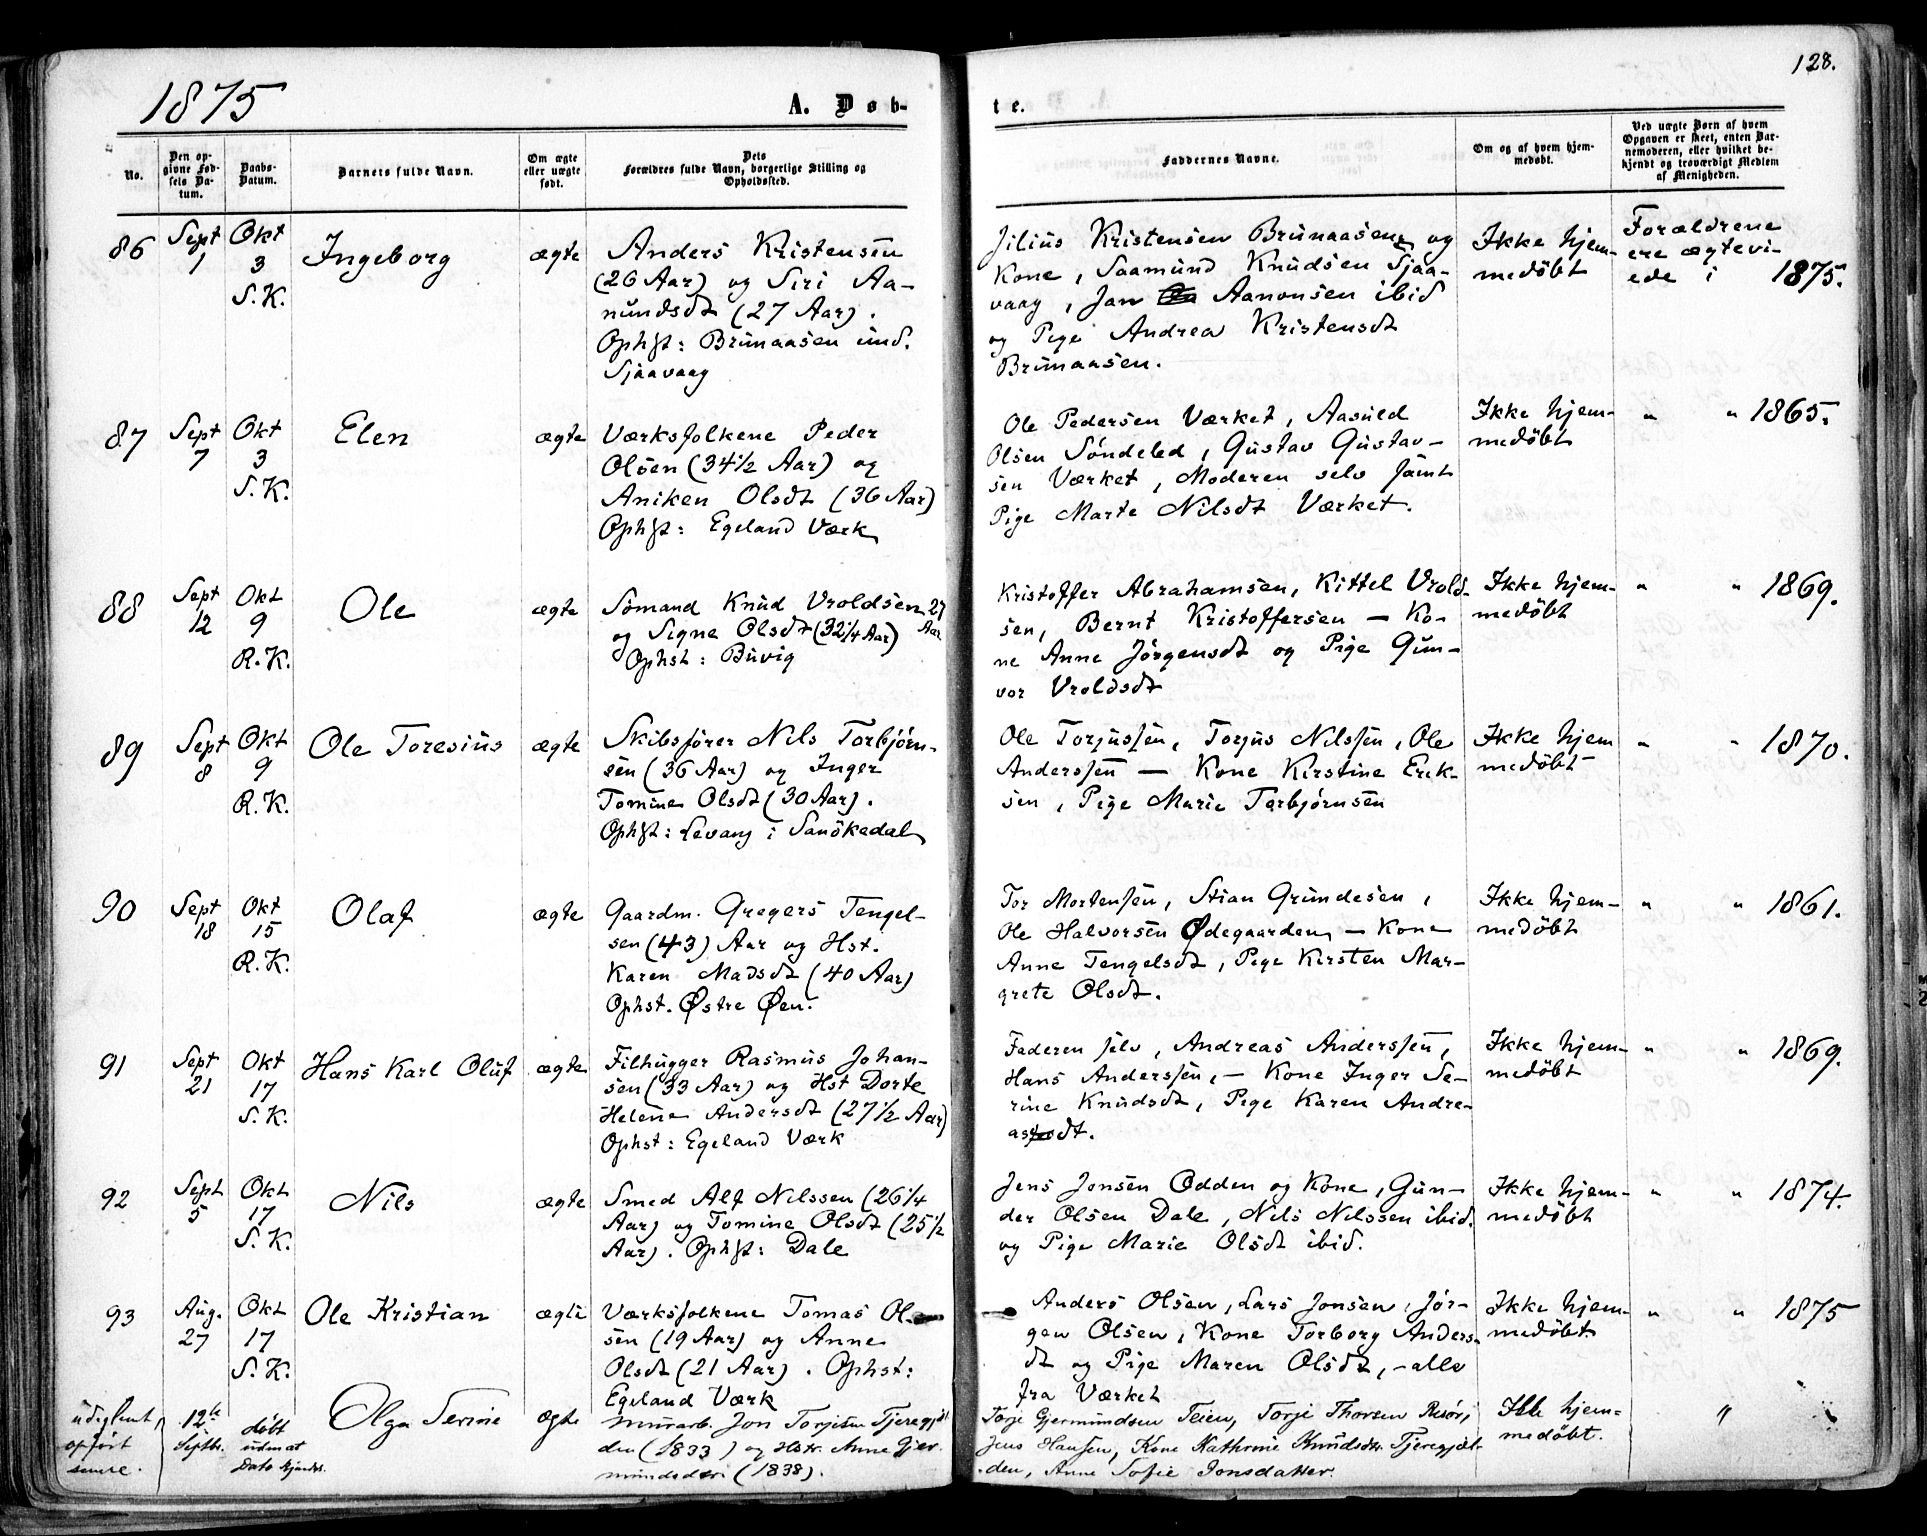 1875
A. Døb-
te.
128.
No.
Den op-
givne Fød-
sels Da-
tum.
Daabs-
Datum.
Barnets fulde Navn.
Om ægte
eller uægte
født.
Dets
Forældres fulde Navn, borgerlige Stilling og
Opholdssted.
Faddernes Navne.
Om og af hvem hjem-
medøbt.
Ved uægte Børn af hvem
Opgaven er skeet, enten Bar-
nemoderen, eller hvilket be-
kjendt og troværdigt Medlem
af Menigheden.
86
Sept
1
Okt
3
S. K.
Ingeborg
ægte
Anders Kristensen
(26 Aar) og Siri Aa-
nundsdt (27 Aar).
Ophst: Brunaasen und.
Sjaavaag
Jilius Kristensen Brunaasen og
Kone, Saamund Knudsen Sjaa-
vaag, Jan Aanonsen ibid
og Pige Andrea Kristensdt
Brunaasen.
Ikke hjem-
medøbt
Forældrene
ere ægtevi-
ede i 1875.
87
Sept
7
Okt
3
S. K.
Elen
ægte
Værksfolkene Peder
Olsen (34½ Aar) og
Aniken Olsdt (36 Aar)
Ophst: Egeland Værk
Ole Pedersen Værket, Aasuld
Olsen Søndeled, Gustav Gustav-
sen Værket, Moderen selv samt
Pige Marte Nilsdt Værket.
Ikke hjem-
medøbt
" " 1865.
88
Sept
12
Okt
9
R. K.
Ole
ægte
Sømand Knud Vroldsen 27
Aar
og Signe Olsdt (32¼ Aar)
Ophst: Buvig
Kristoffer Abrahamsen, Kittel Vrold-
sen, Bernt Kristoffersen — Ko-
ne Anne Jørgensdt og Pige Gun-
vor Vroldsdt
Ikke hjem-
medøbt
" " 1869.
89
Sept
8
Okt
9
R. K.
Ole Toresius
ægte
Skibsfører Nils Torbjørn-
sen (36 Aar) og Inger
Tomine Olsdt (30 Aar).
Ophst: Levang i Sanøkedal
Ole Torjussen, Torjus Nilssen, Ole
Anderssen — Kone Kirstine Erik-
sen, Pige Marie Torbjørnsen
Ikke hjem
medøbt
" " 1870.
90
Sept
18
Okt
15
R. K.
Olaf
ægte
Gaardm. Gregers Tengel-
sen (43) Aar og Hst.
Karen Madsdt (40 Aar)
Ophst. Østre Øen.
Tor Mortensen, Stian Grundesen,
Ole Halvorsen Ødegaarden, — Kone
Anne Tengelsdt, Pige Kirsten Mar-
grete Olsdt.
Ikke hjem-
medøbt
" " 1861.
91
Sept
21
Okt
17
S. K.
Hans Karl Oluf
ægte
Filhugger Rasmus Johan-
sen (33 Aar) og Hst Dorte
Helene Andersdt (27½ Aar)
Ophst: Egeland Værk
Faderen selv, Andreas Anderssen,
Hans Anderssen, — Kone Inger Se-
rine Knudsdt, Pige Karen Andre-
asdt.
Ikke hjem-
medøbt
" " 1869.
92
Sept
5
Okt
17
S. K.
Nils
ægte
Smed Alf Nilssen (26¼
Aar) og Tomine Olsdt (25½
Aar). Ophst: Dale
Jens Jonsen Odden og Kone, Gun-
der Olsen Dale, Nils Nilssen ibid.
og Pige Marie Olsdt ibid.
Ikke hjem-
medøbt
" " 1874.
93
Aug.
27
Okt
17
S. K.
Ole Kristian
ægte
Værksfolkene Tomas Ol-
sen (19 Aar) og Anne
Olsdt (21 Aar). Ophst:
Egeland Værk
Anders Olsen, Lars Jonsen, Jør-
gen Olsen, Kone Torborg Anders-
dt og Pige Maren Olsdt, – alle
fra Værket
Ikke hjem-
medøbt
" " 1875
udeglemt,
opført
senere.
12te
Septbr.
døbt
uden at
Dato kjendes.
Olga Serine
ægte
Jon Torjisen
den (1833) og Hstr. Anne Gjer-
mundsdtr (1838).
Torje Gjermundsen Teien, Torje Thorsen Risør,
Jens Hansen, Kone Kathrine Knudsdtr.
den, Anne Sofie Jonsdatter.
Ikke hjem-
medøbt.
"